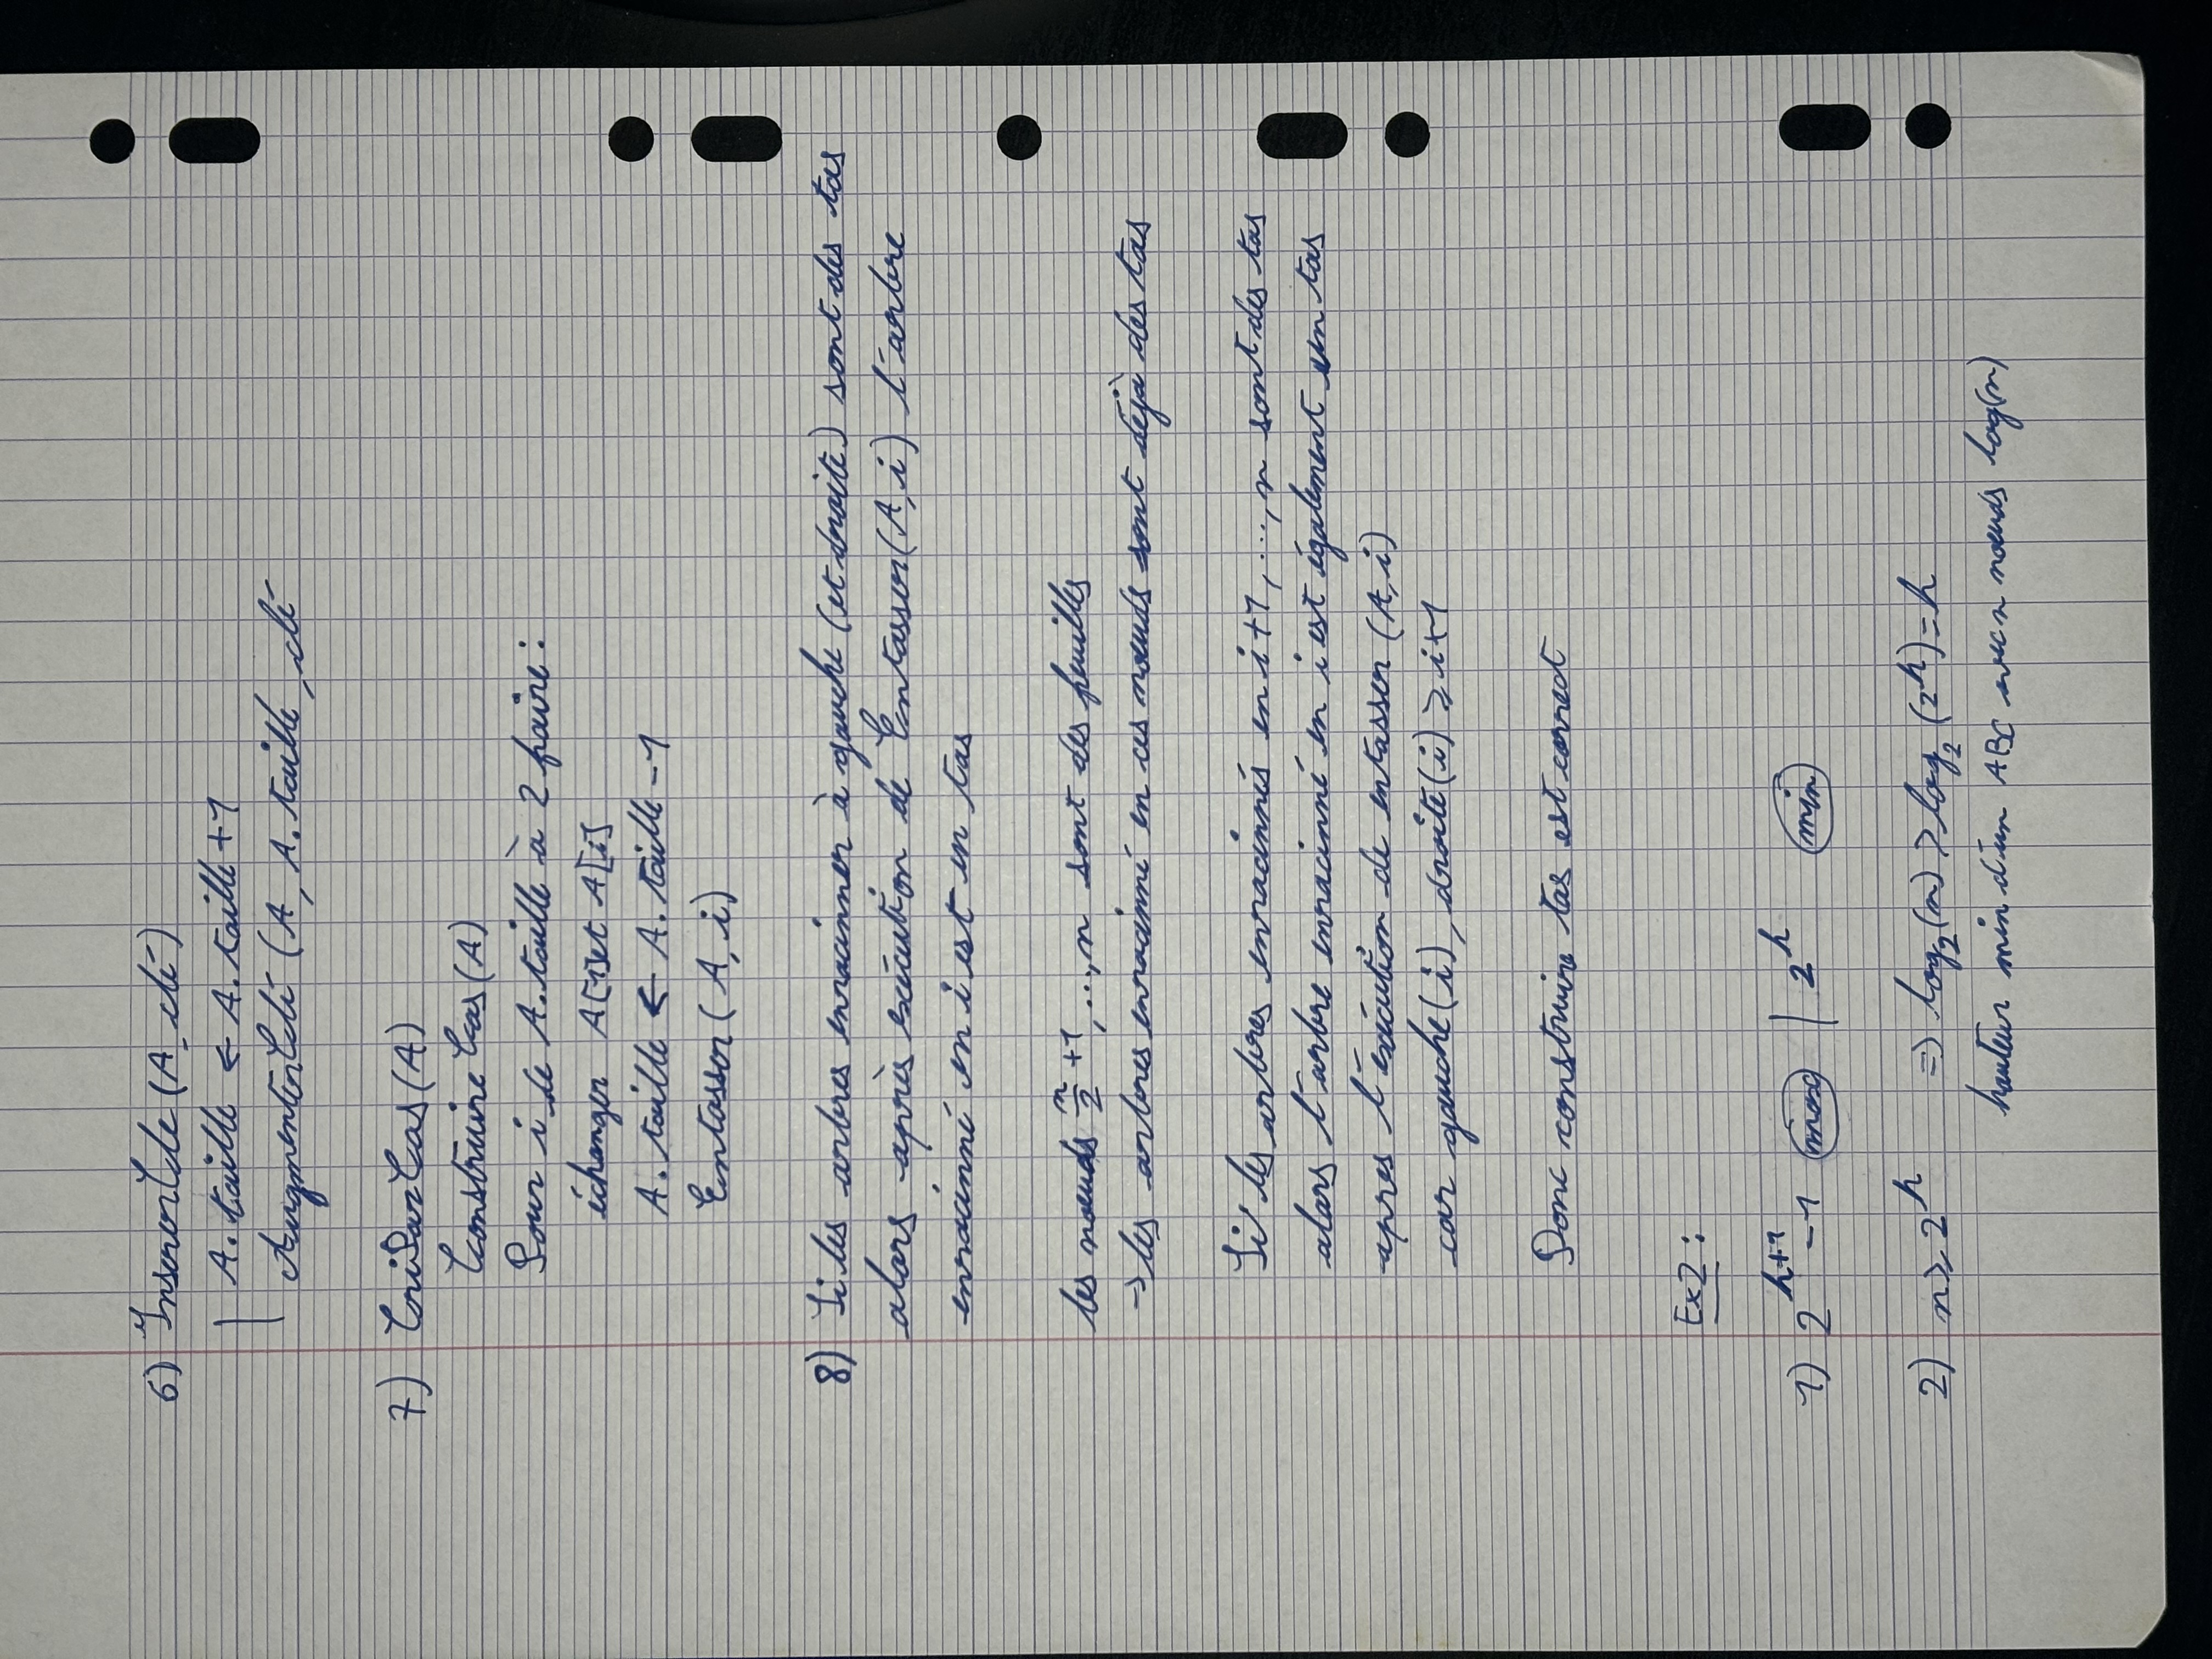 6) InsererCle (A, clé)
A. taille ← A. taille + 1
AugmenterClé (A, A. taille, clé
7) TriParTas (A)
Construire Tas (A)
Pour i de A. taille à 2 faire :
échanger A[1] et A[i]
A. taille ← A. taille - 1
Entasser (A, i)
8) Si les arbres enracinner à gauche (et droite) sont des tas
alors après exécution de Entasser (A, i) l'arbre
enracinné en i est en tas
les nœuds n/2 + 1, ..., n sont des feuilles
→ les arbres enracinné en ces nœuds sont déjà des tas
Si les arbres enracinnés en i+1, ..., n sont des tas
alors l'arbre enracinné en i est également un tas
apres l'exécution de entasser (A, i)
car gauche (i), droite (i) ≥ i+1
Donc construire tas est correct
Ex2 :
1) 2^{h+1} - 1 max | 2^h min
2) n ≥ 2^h ⇒ log₂(n) ≥ log₂(2^h) = h
hauteur min d'un ABC avec n nœuds log(n)